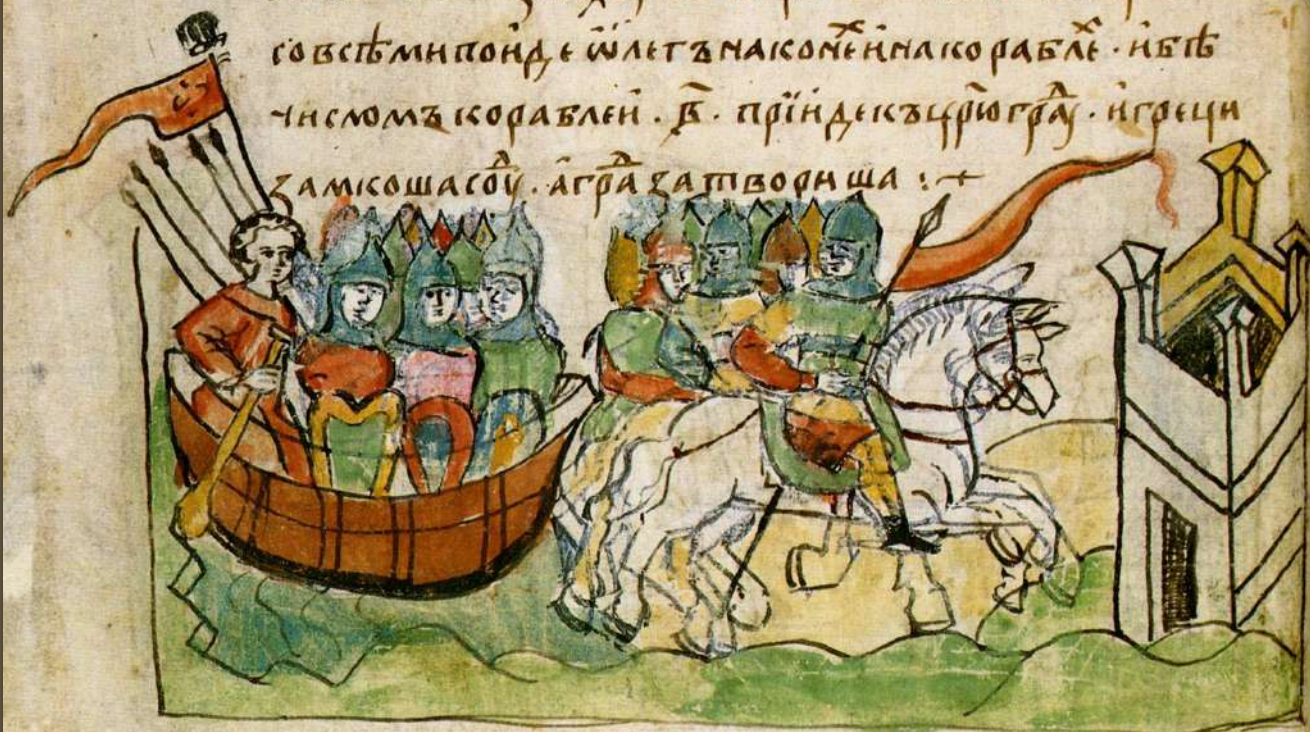 со всѣми поиде ѡлегъ на конеⷯ и на кораблеⷯ · и бѣ
числомъ кораблеи · в҃ · прїиде къ цр҃югра · и греци
замкоша соуⷣ · а граⷣ затвориша :~